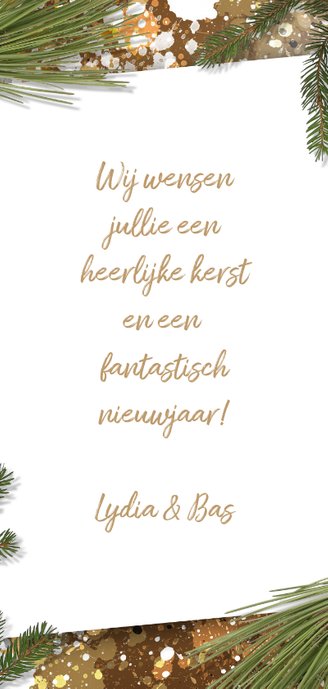 Wij wensen
jullie een
heerlijke kerst
en een
fantastisch
nieuwjaar!
Lydia & Bas